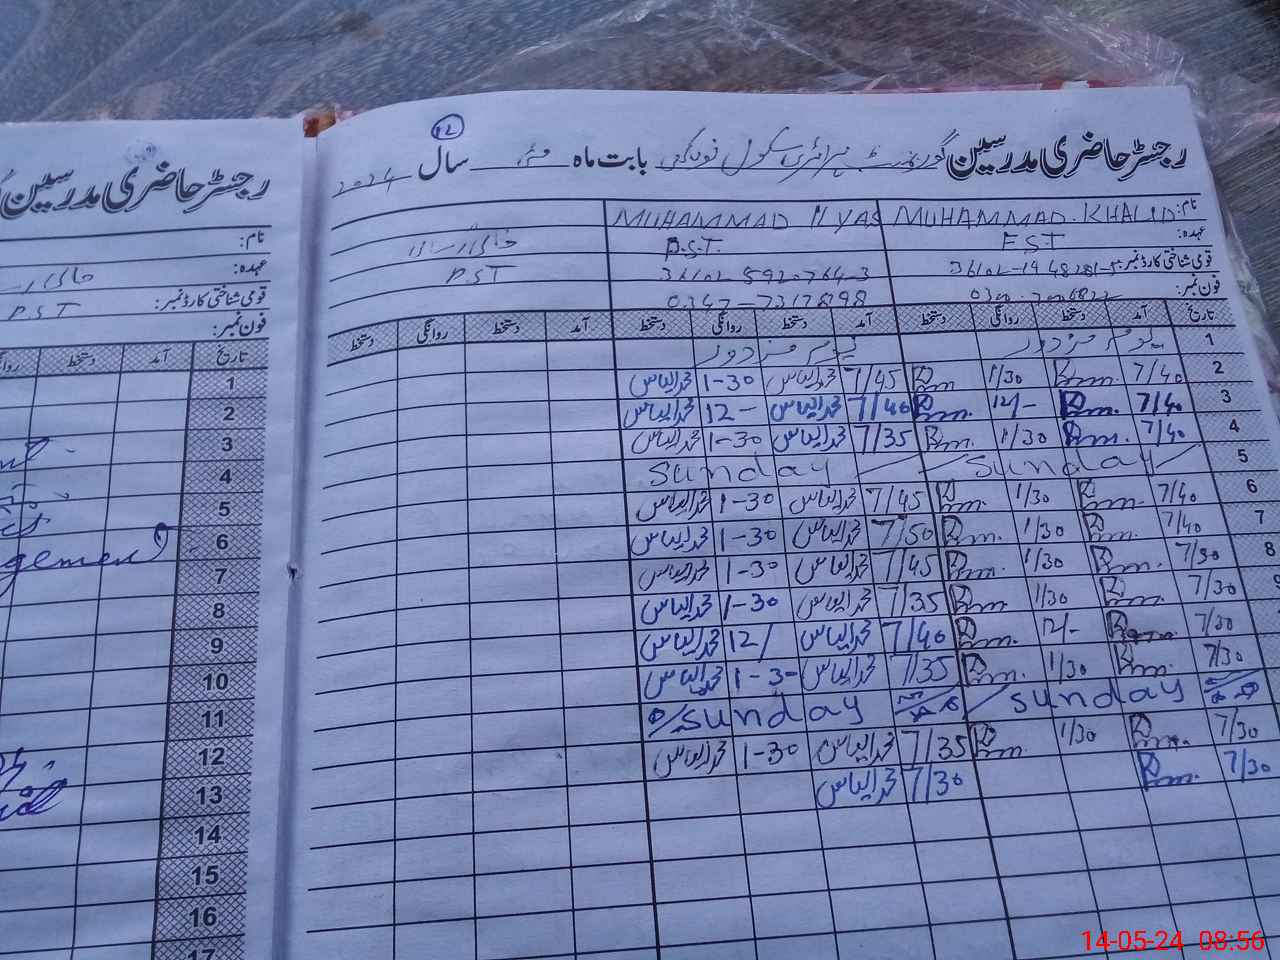 رجسٹر حاضری مدرسین گورنمنٹ پرائمری سکول بابت ماہ مئی سال 2024
12
نام: MUHAMMAD KHALID MUHAMMAD ILYAS خالی
عہدہ: E.S.T P.S.T. P.S.T
قومی شناختی کارڈ نمبر: 36102-1948281-5 36102-5920764-3
فون نمبر: 0347-7317898
تاریخ آمد دستخط روانگی دستخط آمد دستخط روانگی دستخط آمد دستخط روانگی دستخط
1 یوم مزدور یوم مزدور
2 7/40 1/30 7/45 محمد الیاس 1-30 محمد الیاس
3 7/40 12/- 7/40 محمد الیاس 12- محمد الیاس
4 7/40 1/30 7/35 محمد الیاس 1-30 محمد الیاس
5 sunday sunday
6 7/40 1/30 7/45 محمد الیاس 1-30 محمد الیاس
7 7/40 1/30 7/50 محمد الیاس 1-30 محمد الیاس
8 7/30 1/30 7/45 محمد الیاس 1-30 محمد الیاس
7/30 1/30 7/35 محمد الیاس 1-30 محمد الیاس
7/30 12/- 7/40 محمد الیاس 12/ محمد الیاس
7/30 1/30 7/35 محمد الیاس 1-30 محمد الیاس
sunday sunday
7/30 1/30 7/35 محمد الیاس 1-30 محمد الیاس
7/30 7/30 محمد الیاس
رجسٹر حاضری مدرسین
نام:
عہدہ: خالی
قومی شناختی کارڈ نمبر: P.S.T
فون نمبر:
تاریخ آمد دستخط
1
2
3
4
5
6
7
8
9
10
11
12
13
14
15
16
17
14-05-24 08:56